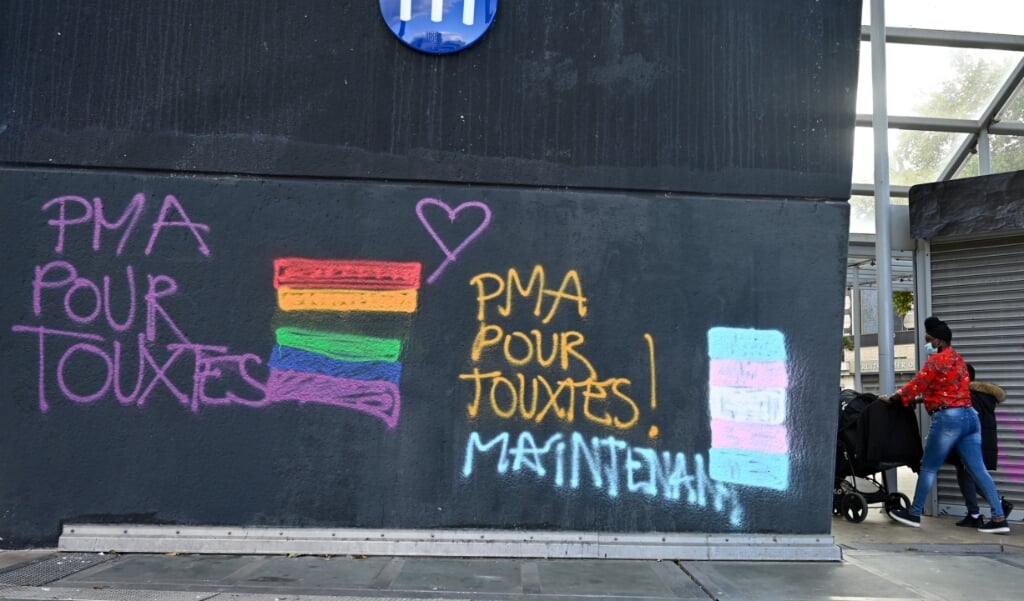 PMA
POUR
TOUXTES
PMA
POUR
TOUXTES !
MAINTENANT